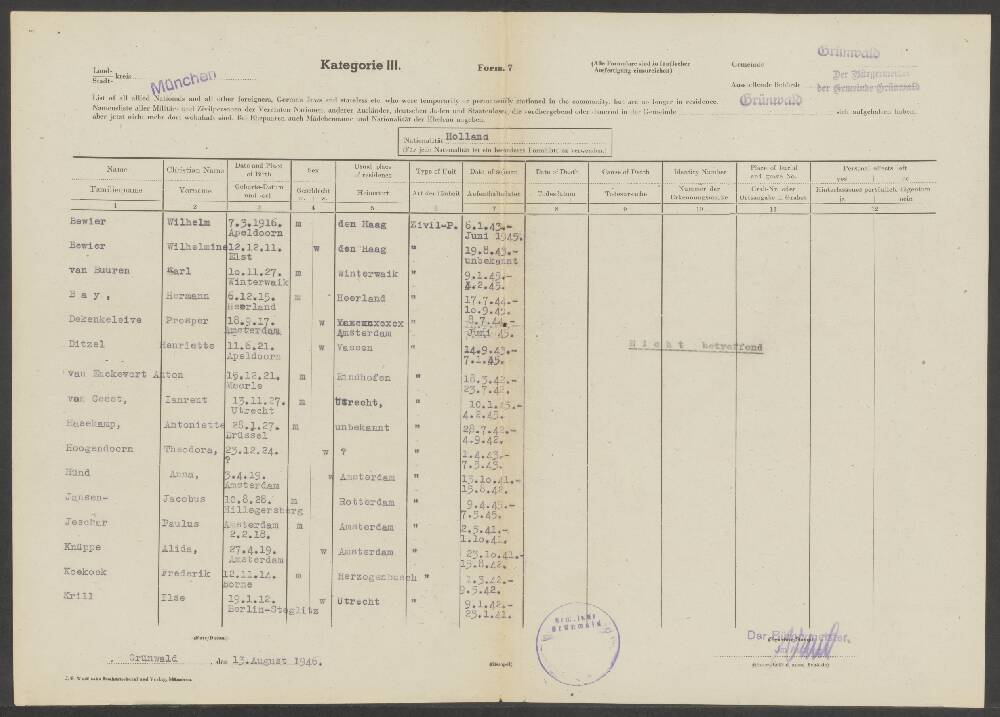 Land-
Stadt- kreis München
Kategorie III.
Form. 7
(Alle Formulare sind in fünffacher
Ausfertigung einzureichen)
Gemeinde Grünwald
Ausstellende Behörde Der Bürgermeister
der Gemeinde Grünwald
List of all allied Nationals and all other foreigners, German Jews and stateless etc. who were temporarily or permanently stationed in the community, but are no longer in residence.
Namensliste aller Militär- und Zivilpersonen der Vereinten Nationen, anderer Ausländer, deutschen Juden und Staatenloser, die vorübergehend oder dauernd in der Gemeinde Grünwald sich aufgehalten haben,
aber jetzt nicht mehr dort wohnhaft sind. Bei Ehepaaren auch Mädchenname und Nationalität der Ehefrau angeben.
Nationalität Holland
(Für jede Nationalität ist ein besonderes Formular zu verwenden)
Name Christian Name Date and Place of Birth Sex Usual place of residence Type of Unit Date of Sojourn Date of Death Cause of Death Identity Number Place of burial and grave No. Personal effects left yes no
Familienname Vorname Geburts-Datum und -ort Geschlecht m. w. Heimatort Art der Einheit Aufenthaltsdauer Todesdatum Todesursache Nummer der Erkennungsmarke Grab-Nr. oder Ortsangabe d. Grabes Hinterlassenes persönlich. Eigentum ja nein
1 2 3 4 5 6 7 8 9 10 11 12
Bewier Wilhelm 7.3.1916. m den Haag Zivil-P. 6.1.43.-
Apeldoorn Juni 1945.
Bewier Wilhelmine 12.12.11. w den Haag " 19.8.43.-
Elst unbekannt
van Buuren Karl 10.11.27. m Winterwaik " 9.1.45.-
Winterwaik 4.2.45.
Bay, Hermann 6.12.15. m Heerland " 17.7.44.-
Heerland 10.9.45.
Dekenkeleive Prosper 18.9.17. w " 8.7.44.-
Amsterdam Amsterdam Juni 45.
Ditzel Henriette 11.6.21. w Vassen " 14.9.43.-
Apeldoorn 7.1.45.
Nicht betreffend
van Enckevort Anton 15.12.21. m Eindhofen " 18.3.42.-
Meerle 23.7.42.
van Geest, Ianrent 13.11.27. m Utrecht, " 10.1.45.-
Utrecht 4.2.45.
Hasekamp, Antoniette 28.1.27. m unbekannt " 28.7.42.-
Brüssel 4.9.42.
Hoogendoorn Theodora, 23.12.24. w ? " 1.4.43.-
? 7.5.43.
Hünd Anna, 3.4.19. w Amsterdam " 13.10.41.-
Amsterdam 15.8.42.
Jansen- Jacobus 10.8.28. m Rotterdam " 9.4.45.-
Hillegersberg 7.5.45.
Jeschar Paulus Amsterdam m Amsterdam " 2.5.41.-
2.2.18. 1.10.41.
Knüppe Alida, 27.4.19. w Amsterdam " 23.10.41.-
Amsterdam 15.8.42.
Koekoek Frederik 12.11.14. m Herzogenbusch " 1.3.42.-
Borne 9.5.42.
Krill Ilse 19.1.12. w Utrecht " 9.1.42.-
Berlin-Steglitz 29.1.42.
(Ort/Datum)
Grünwald, den 13.August 1946.
(Stempel)
Gemeinde
Grünwald
Der Bürgermeister,